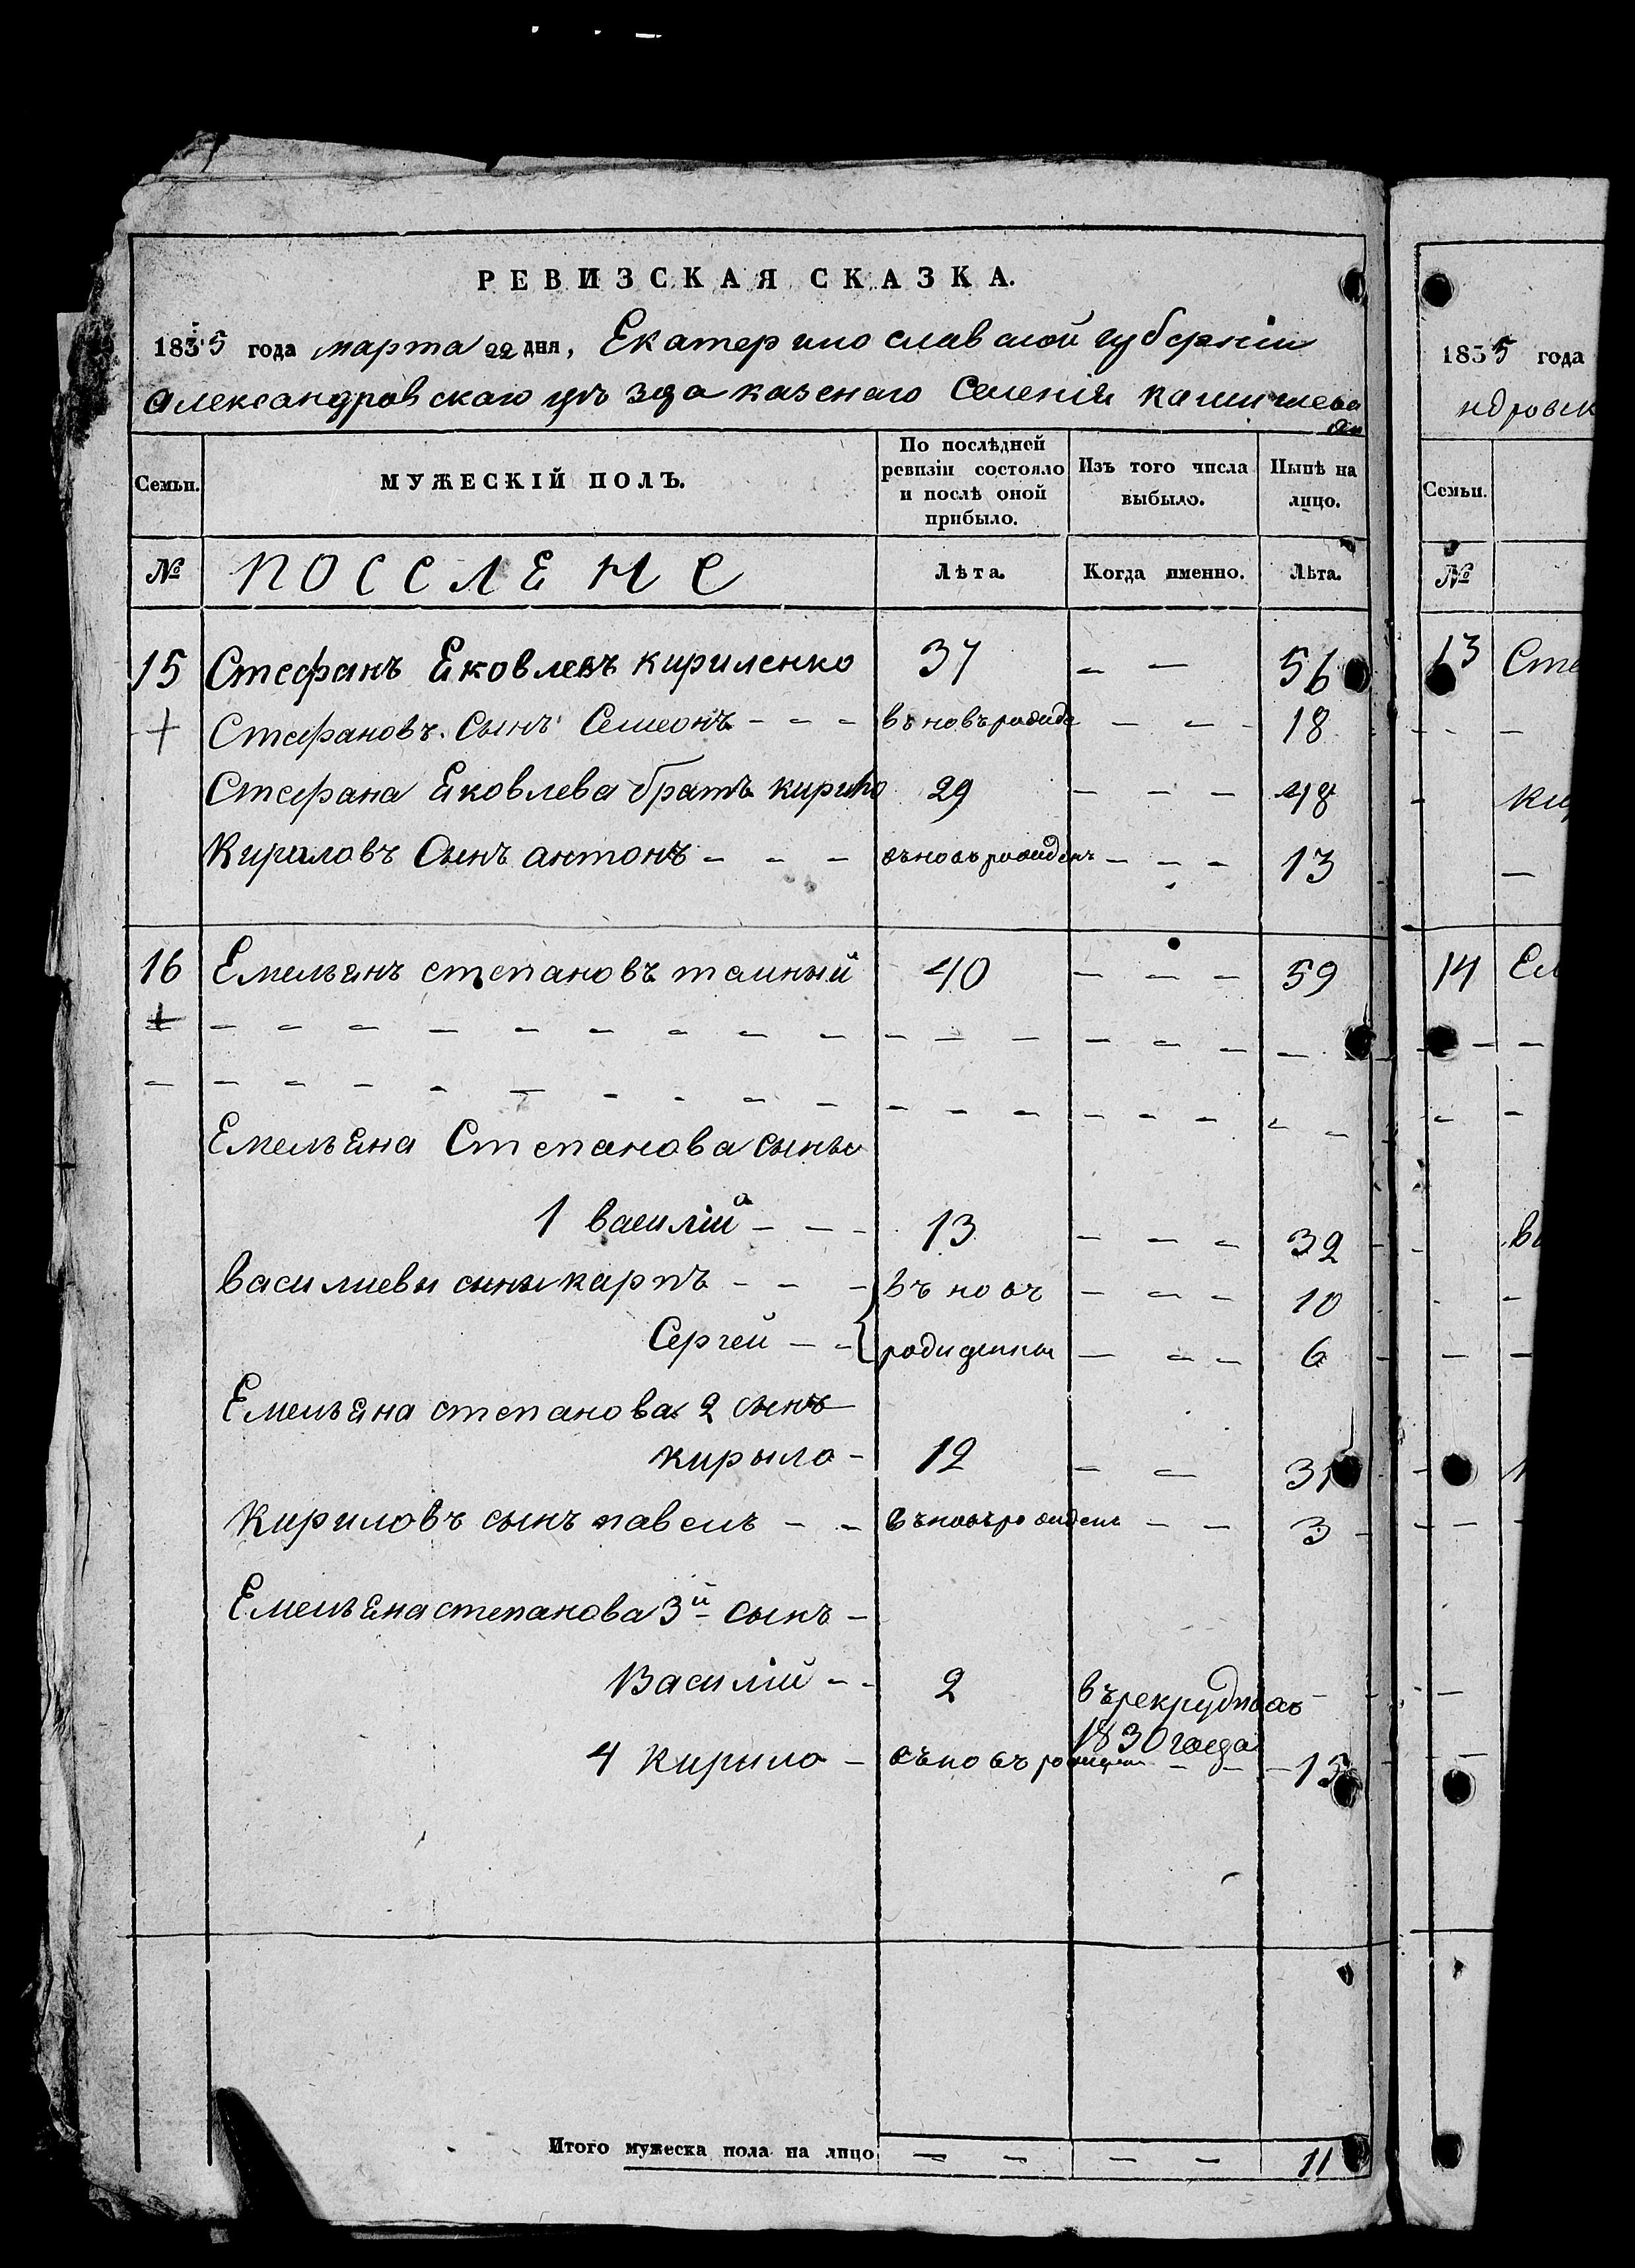 РЕВИЗСКАЯ СКАЗКА.
1835 года марта 22 дня, Екатеринославской губерніи
Александровскаго уѣзда казенаго Селенія
Семьи.
МУЖЕСКІЙ ПОЛЪ.
По послѣдней ревизіи состояло и послѣ оной прибыло.
Изъ того числа выбыло.
Нынѣ на лицо.
№
ПОССЛЕНЕ
Лѣта.
Когда именно.
Лѣта.
15 Стефанъ Яковлевъ кириленко 37 - - 56
+ Стефановъ Сынъ Семеонъ - - - въновърожде - - - 18
Стефана Яковлева братъ кирило 29 - - - 48
Кириловъ Сынъ антонъ - - - въновърожденъ - - - 13
16 Емельянъ степановъ темный 40 - - - 59
+ - - - - - - - - - - - - - - -
- - - - - - - - - - - - - - - -
Емельяна Степанова сыны
1 василій - - - 13 - - - 32
василиевы сыны карпъ - - - въ новъ - - - 10
Сергей - - рожденны - - - 6
Емельяна степанова 2 сынъ
кирыло - 12 - - 31
Кириловъ сынъ павелъ - - въновърожденъ - - 3
Емельяна степанова 3й сынъ -
Василій - - 2 въ рекрудтахъ
1830 года
4 Кирило - въновърожден - - - 15
Итого мужеска пола на лицо - - - - 11
1835 года
ндровск
Семьи.
№
13 Сте
14 Ем